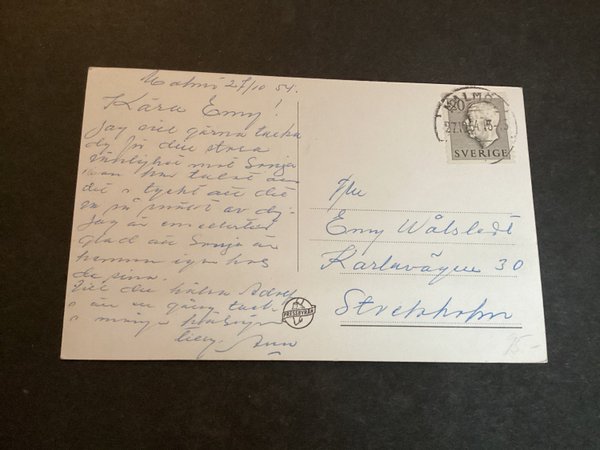 Malmö 27/10 54.
Kära Emy!
Jag vill gärna tacka
dig för din stora
vänlighet mot Sonja
hon har talat om
det o tyckt att det
är så snällt av dig.
Jag är emellertid
glad att Sonja är
hemma igen hos
de sina.
Vill du hälsa Adolf
o än en gång tack
o många hälsningar
PRESSBYRÅN
MALMÖ
27.10.54
20
SVERIGE
Fru
Emy Wålstedt
Karlavägen 30
Stockholm
75.-